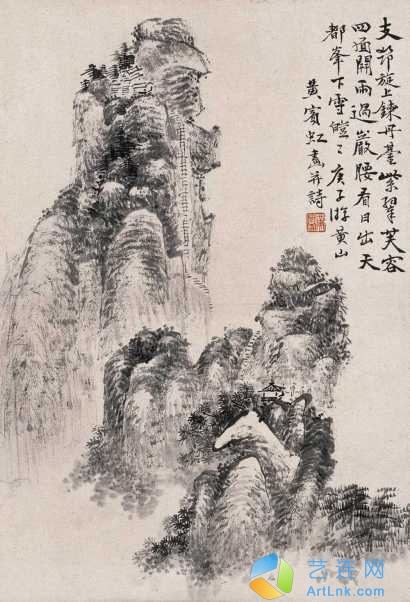 支笻旋上鍊丹臺紫翠芙容
四面開雨過巖腰看日出天
都峯下雪皚〻庚子游黃山
黃賓虹畫并詩
艺连网
ArtLnk.com